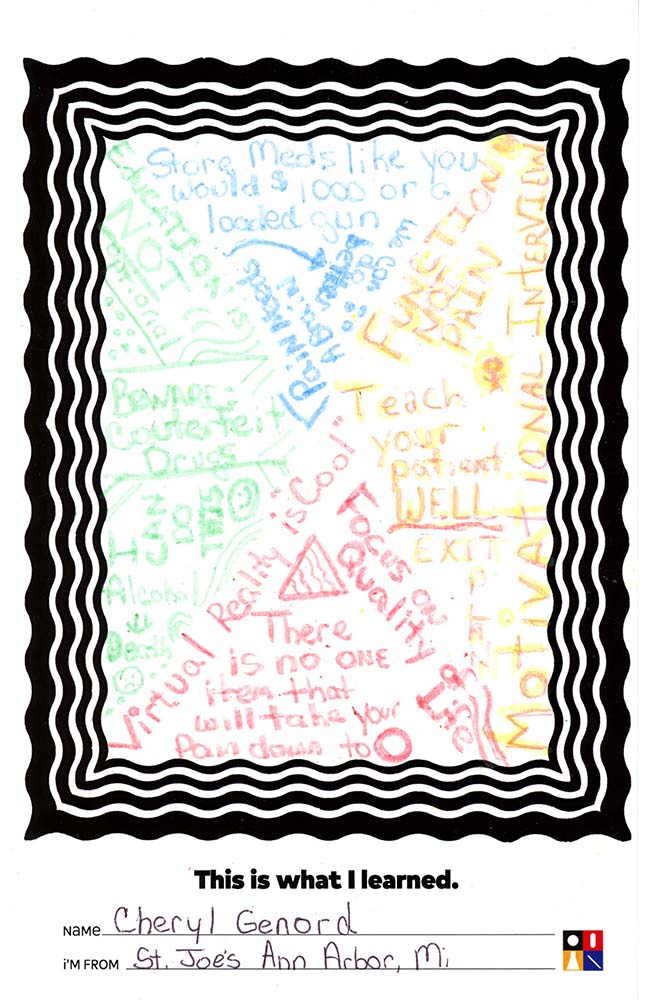 Store Meds like you
would $ 1000 or a
loaded gun
EDUCATION is
NOT
optional
Pain Needs
A Brain
We can
do
better
FUNCTION
NOT
PAIN
MOTIVATIONAL INTERVIEW
BEWARE:
Couterfeit
Drugs
Teach
your
patient
WELL
I CAN
DO
THIS
Alcohol
Death
Virtual Reality is "Cool"
Focus on
Quality
Life
EXIT
PLAN
There
is no ONE
item that
will take your
Pain down to O
This is what I learned.
NAME Cheryl Genord
i'M FROM St. Joe's Ann Arbor, Mi